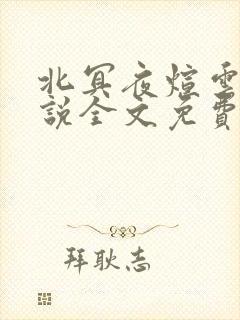 北冥夜煊雲
說全文免費
拜耿志